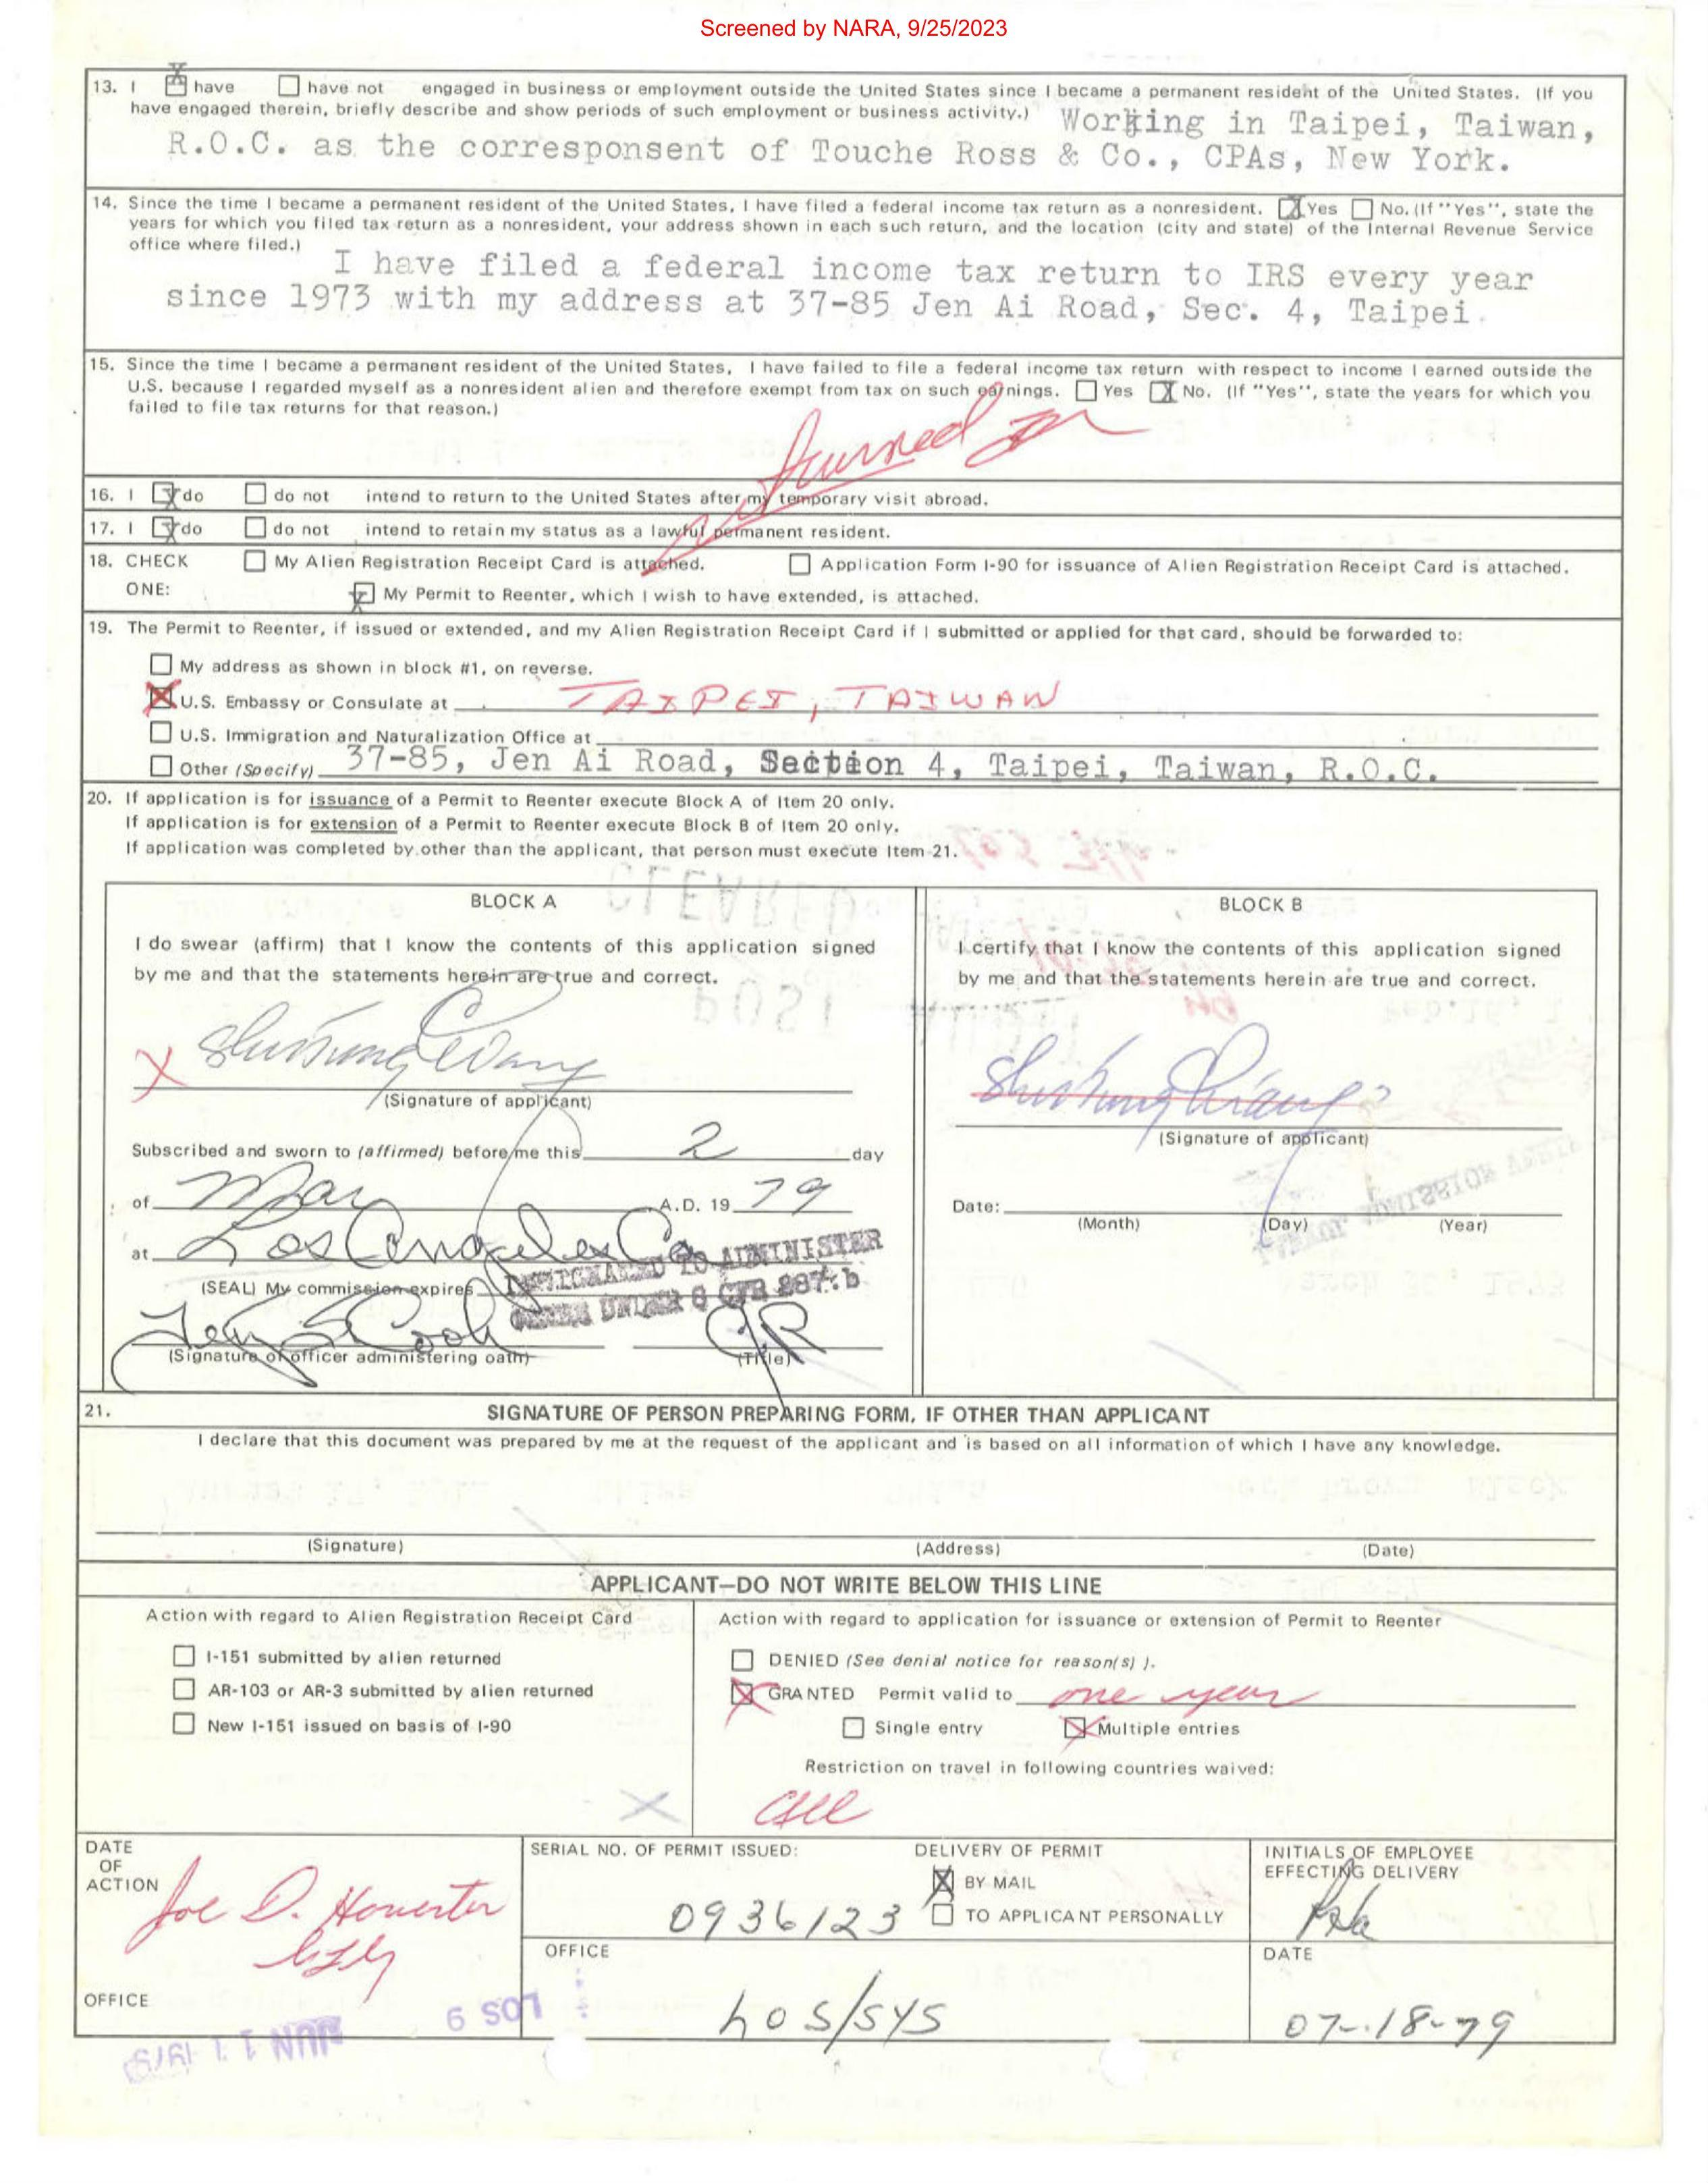 Screened by NARA, 9/25/2023
13. I have have not engaged in business or employment outside the United States since I became a permanent resident of the United States. (If you
have engaged therein, briefly describe and show periods of such employment or business activity.) Working in Taipei, Taiwan,
R.O.C. as the corresponsent of Touche Ross & Co., CPAs, New York.
14. Since the time I became a permanent resident of the United States, I have filed a federal income tax return as a nonresident. X Yes No. (If "Yes", state the
years for which you filed tax return as a nonresident, your address shown in each such return, and the location (city and state) of the Internal Revenue Service
office where filed.)
I have filed a federal income tax return to IRS every year
since 1973 with my address at 37-85 Jen Ai Road, Sec. 4, Taipei.
15. Since the time I became a permanent resident of the United States, I have failed to file a federal income tax return with respect to income I earned outside the
U.S. because I regarded myself as a nonresident alien and therefore exempt from tax on such earnings. Yes X No. (If "Yes", state the years for which you
failed to file tax returns for that reason.)
16. I X do do not intend to return to the United States after my temporary visit abroad.
17. I X do do not intend to retain my status as a lawful permanent resident.
18. CHECK My Alien Registration Receipt Card is attached. Application Form I-90 for issuance of Alien Registration Receipt Card is attached.
ONE: My Permit to Reenter, which I wish to have extended, is attached.
19. The Permit to Reenter, if issued or extended, and my Alien Registration Receipt Card if I submitted or applied for that card, should be forwarded to:
My address as shown in block #1, on reverse.
X U.S. Embassy or Consulate at TAIPEI, TAIWAN
U.S. Immigration and Naturalization Office at
Other (Specify) 37-85, Jen Ai Road, Section 4, Taipei, Taiwan, R.O.C.
20. If application is for issuance of a Permit to Reenter execute Block A of Item 20 only.
If application is for extension of a Permit to Reenter execute Block B of Item 20 only.
If application was completed by other than the applicant, that person must execute Item 21.
BLOCK A
I do swear (affirm) that I know the contents of this application signed
by me and that the statements herein are true and correct.
X
(Signature of applicant)
Subscribed and sworn to (affirmed) before me this 2 day
of May A.D. 19 79
at Los Angeles Ca
(SEAL) My commission expires DESIGNATED TO ADMINISTER
UNDER 8 CFR 287.b
(Signature of officer administering oath) (Title)
BLOCK B
I certify that I know the contents of this application signed
by me and that the statements herein are true and correct.
(Signature of applicant)
Date:
(Month) (Day) (Year)
21. SIGNATURE OF PERSON PREPARING FORM, IF OTHER THAN APPLICANT
I declare that this document was prepared by me at the request of the applicant and is based on all information of which I have any knowledge.
(Signature) (Address) (Date)
APPLICANT—DO NOT WRITE BELOW THIS LINE
Action with regard to Alien Registration Receipt Card
I-151 submitted by alien returned
AR-103 or AR-3 submitted by alien returned
New I-151 issued on basis of I-90
Action with regard to application for issuance or extension of Permit to Reenter
DENIED (See denial notice for reason(s) ).
X GRANTED Permit valid to one year
Single entry X Multiple entries
Restriction on travel in following countries waived:
all
DATE
OF
ACTION
Joe D.
OFFICE
LOS 9
JUN 11 1979
SERIAL NO. OF PERMIT ISSUED:
0936123
DELIVERY OF PERMIT
X BY MAIL
TO APPLICANT PERSONALLY
INITIALS OF EMPLOYEE
EFFECTING DELIVERY
OFFICE
LOS/SYS
DATE
07-18-79